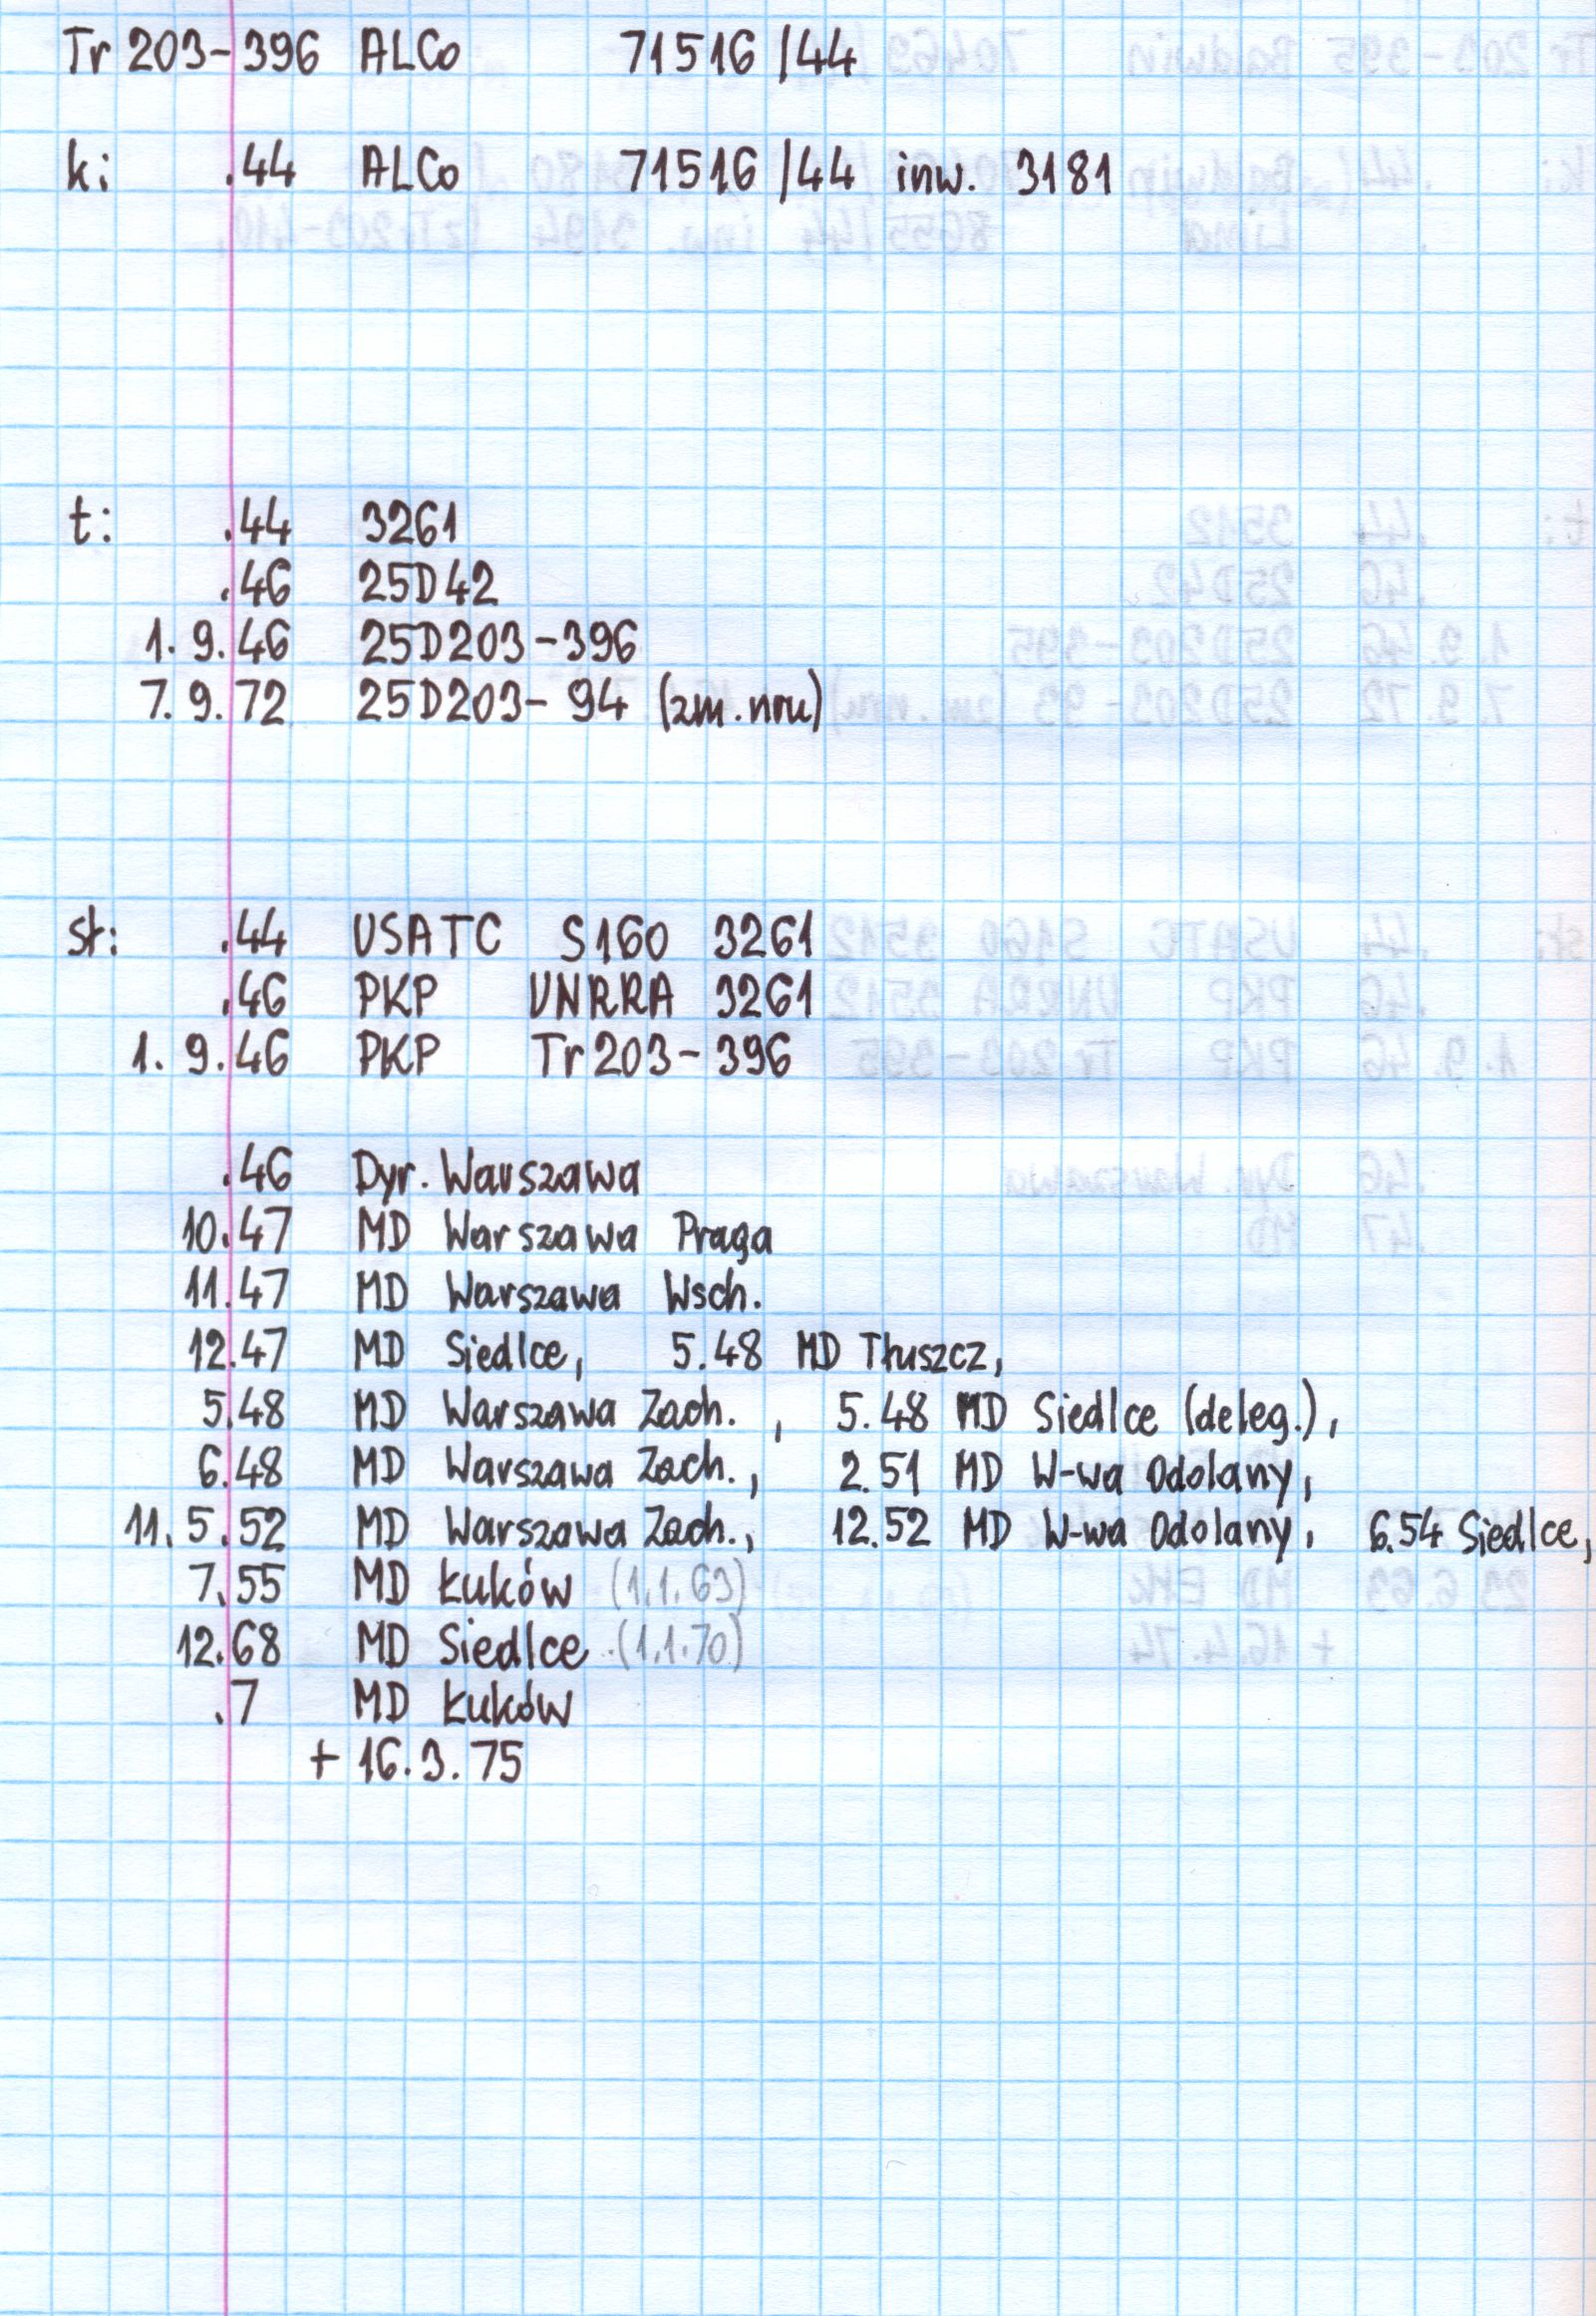 Tr 203-396 ALCo 71516/44
k: .44 ALCo 71516/44 inw. 3181
t: .44 3261
.46 25D42
1.9.46 25D203-396
7.9.72 25D203-94 (zm. nru)
st: .44 USATC S160 3261
.46 PKP UNRRA 3261
1.9.46 PKP Tr203-396
.46 Dyr. Warszawa
10.47 MD Warszawa Praga
11.47 MD Warszawa Wsch.
12.47 MD Siedlce, 5.48 MD Tłuszcz,
5.48 MD Warszawa Zach., 5.48 MD Siedlce (deleg.),
6.48 MD Warszawa Zach., 2.51 MD W-wa Odolany,
11.5.52 MD Warszawa Zach., 12.52 MD W-wa Odolany, 6.54 Siedlce,
7.55 MD Łuków (1.1.63)
12.68 MD Siedlce (1.1.70)
.7 MD Łuków
+ 16.3.75